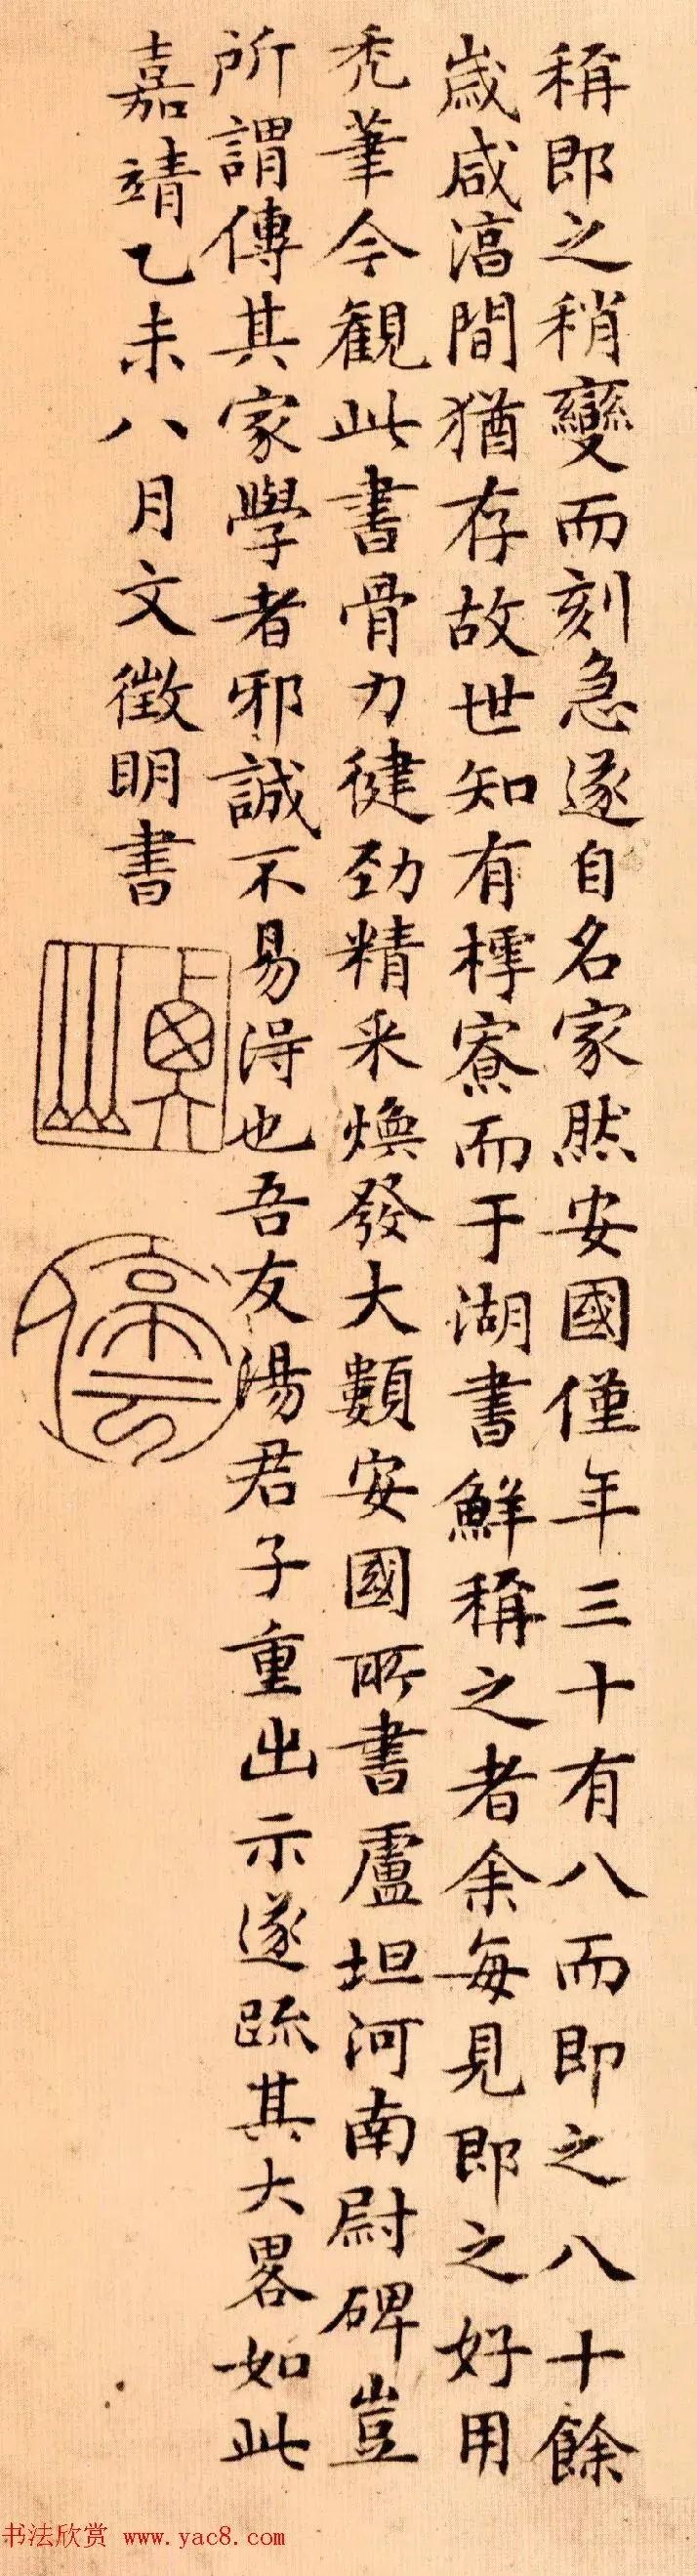 稱即之稍變而刻急遂自名家然安國僅年三十有八而即之八十餘
歲咸淳間猶存故世知有樗寮而于湖書鮮稱之者余每見即之好用
禿筆今觀此書骨力健勁精采煥發大類安國所書盧坦河南尉碑豈
所謂傳其家學者邪誠不易得也吾友湯君子重出示遂疏其大畧如此
嘉靖乙未八月文徵明書
停雲
书法欣赏 www.yac8.com